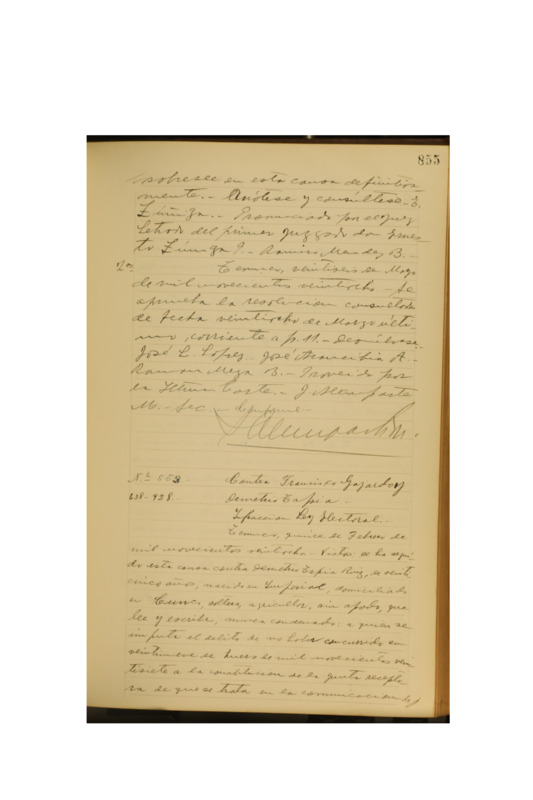 855
sobresee en esta causa definitiva
mente.- Anótese y consúltese- E.
Zúñiga.- Pronunciado por el juez
Letrado del primer juzgado don Ernes
to Zúñiga J.- Ramiro Mendez B.-
2a. Temuco, veintiseis de Mayo
de mil novecientos veintiocho- Se
aprueba la resolucion consultada
de fecha veintiocho de Marzo ulti
mo, corriente a f. 11.- Devuélvase.
José L. Lopez- José Arancibia A.-
Ramon Meza B.- Proveido por
la Iltma. Corte.- J Alemparte
M.- Sec
J Alemparte M.
N.º 553 Contra Francisco Gajardo y
638-928 Demetrio Tapia.
Infraccion Ley Electoral.
Temuco, quince de Febrero de
mil novecientos veintiocho- Vistos: se ha segui
do esta causa contra Demetrio Tapia Ruiz, de veinti
cinco años, nacido en Imperial, domiciliado
en Cunco, soltero, agricultor, sin apodo, que
lee y escribe, nunca condenado; a quien se
imputa el delito de no haber concurrido en
veintinueve de Enero de mil novecientos vein
tisiete a la constitucion de la junta recepto
ra de que se trata en la comunicacion de f